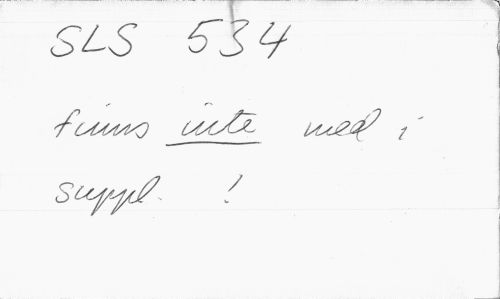 SLS 534
finns inte med i
suppl. !